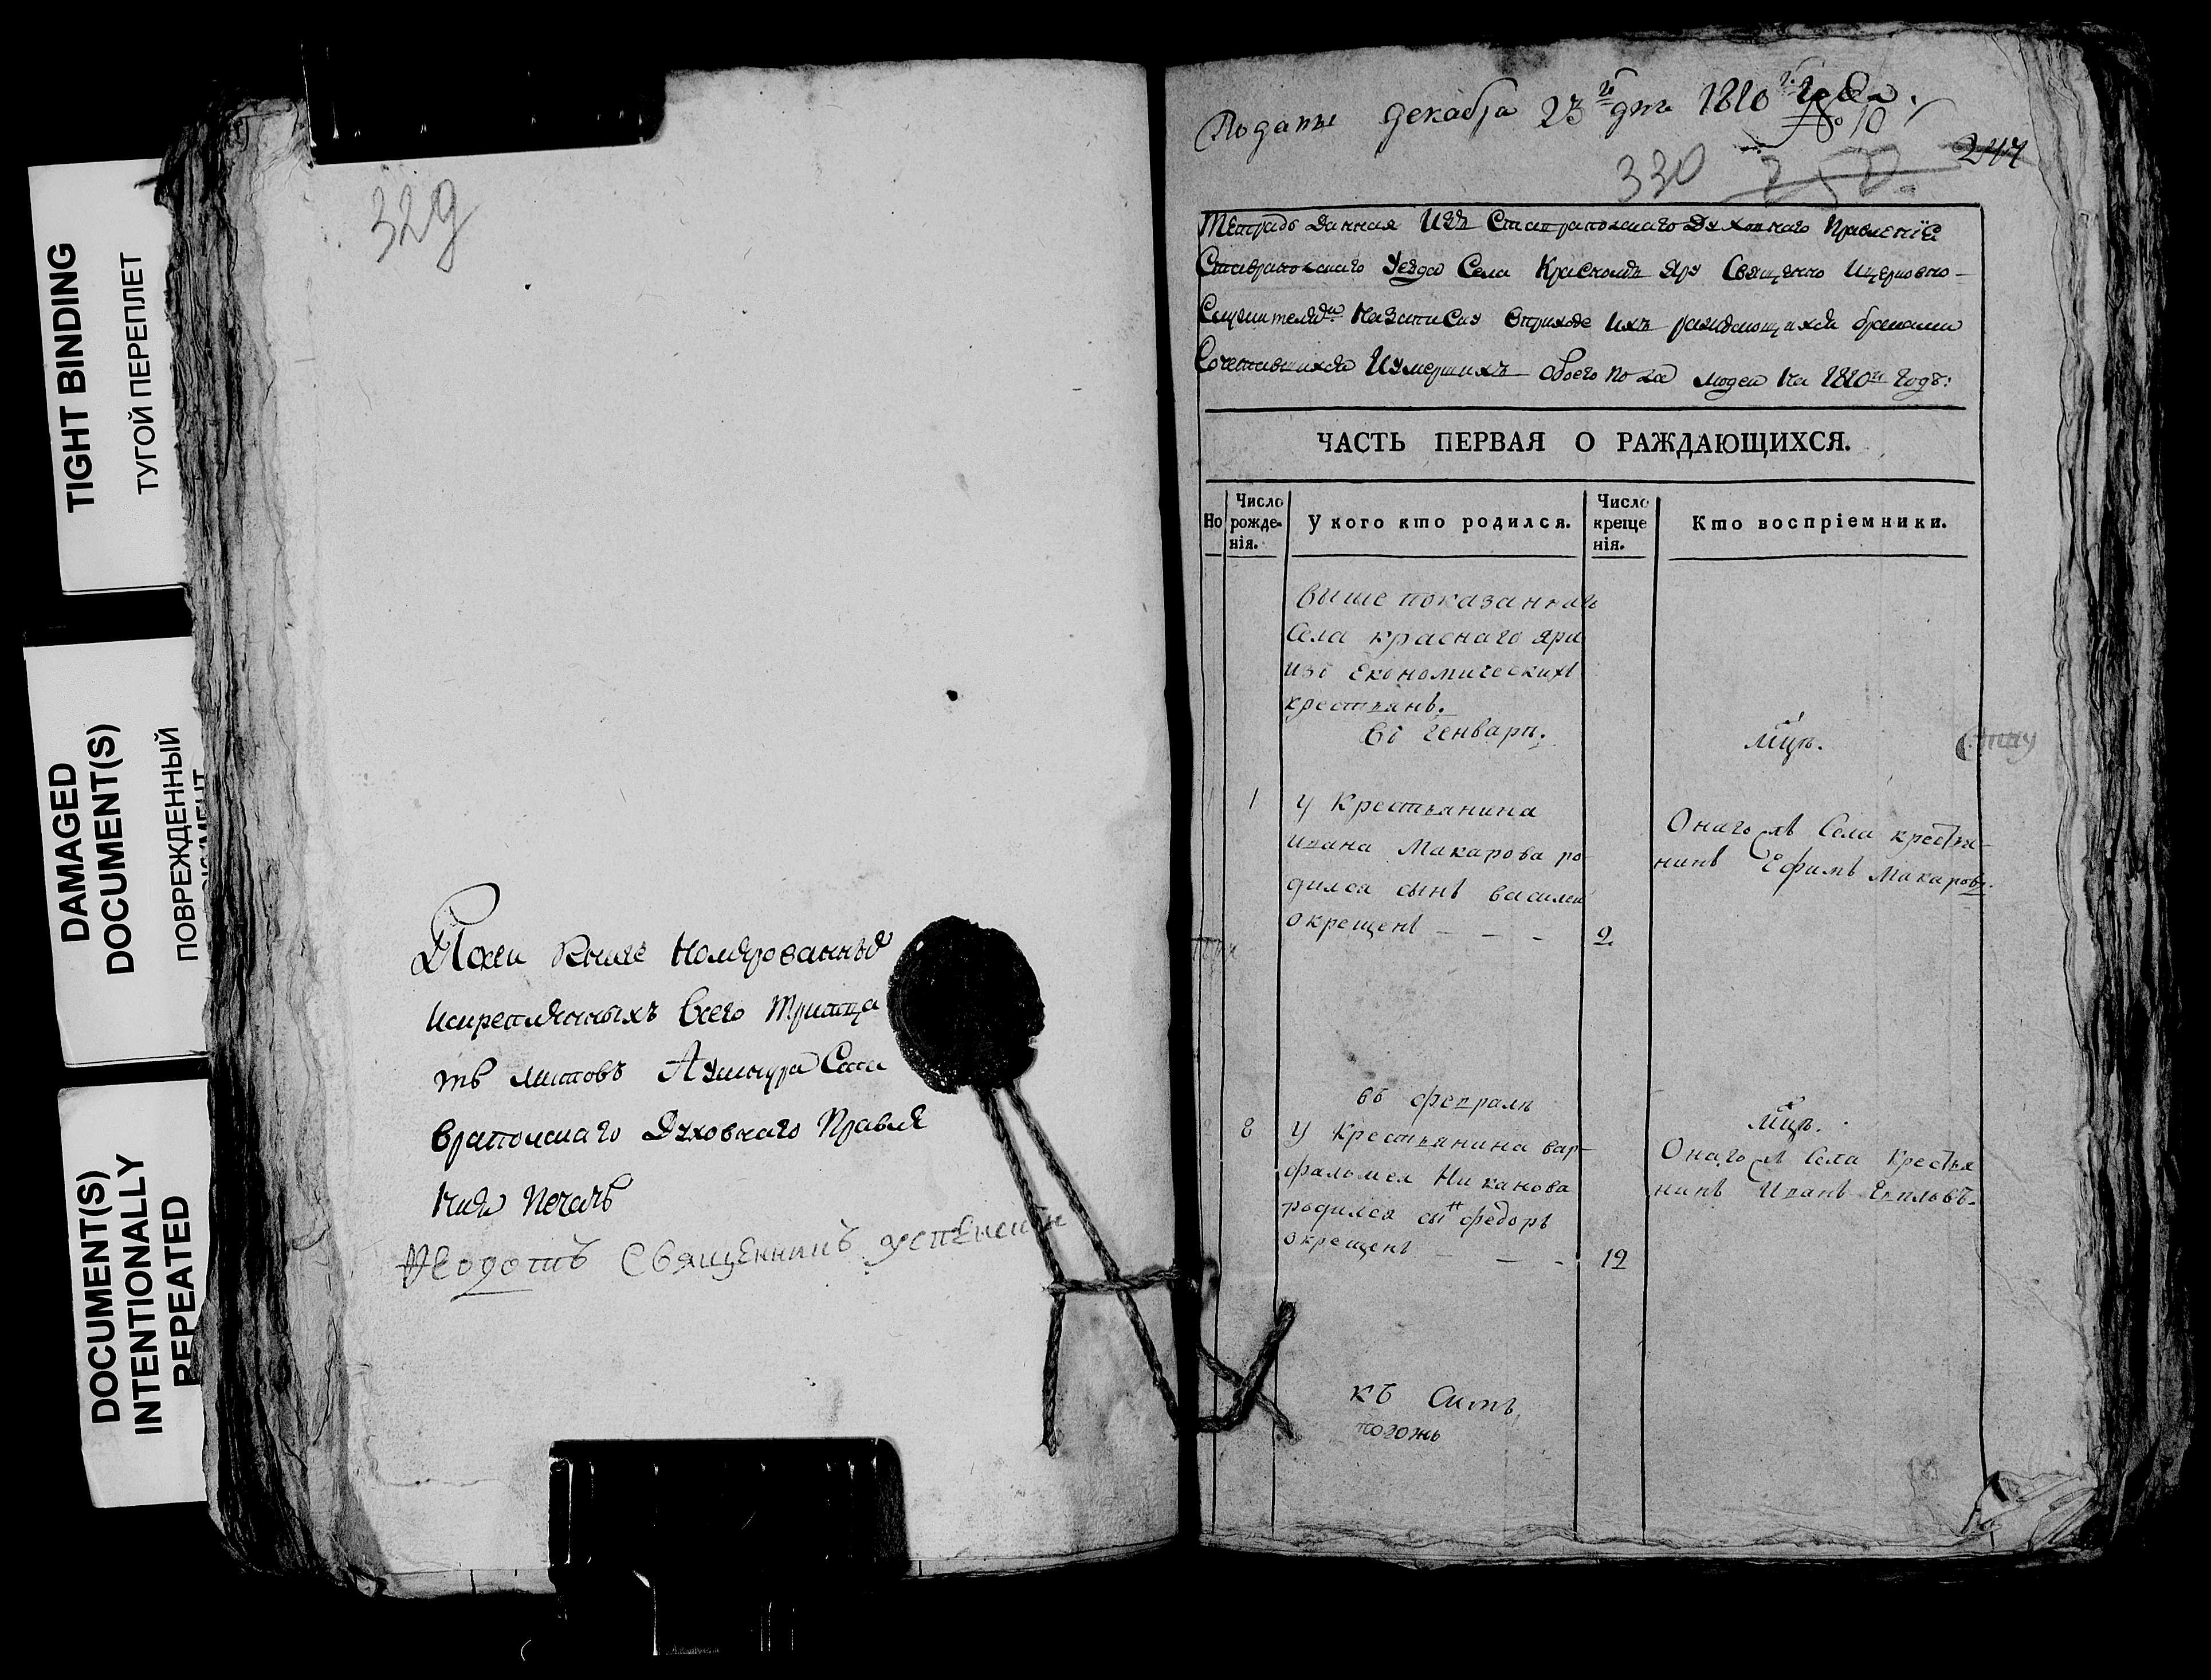 TIGHT BINDING
ТУГОЙ ПЕРЕПЛЕТ
DAMAGED
DOCUMENT(S)
ПОВРЕЖДЕННЫЙ
DOCUMENT(S)
INTENTIONALLY
REPEATED
329
книге
всего Тритца
ть листовъ
вратолскаго Духовнаго Правле
нія Печать
Ѳеодотъ Священникъ Успенскій
Поданы декабря 23 го дня 1810 го года.
№ 10
247
330
Тетрадь данная Изъ Ставрапольскаго Духовнаго Правленіе
Ставрапольскаго Уезда Села Красномъ Яру Священно Ицерковно-
Служителямъ Назаписку Вприходе Ихъ раждающихся браками
Сочетавшихся Иумершихъ обоего пола людей На 1810й Годъ:
ЧАСТЬ ПЕРВАЯ О РАЖДАЮЩИХСЯ.
Но
Число рожде- нія.
У кого кто родился.
Число креще нія.
Кто воспріемники.
Выше показаннаго
Села краснаго яра
изъ Економическихъ
крестьянъ.
Въ Генварѣ.
1
1
У Крестьянина
Ивана Макарова ро-
дился сынъ василей
окрещенъ - - -
2
Онаго жъ Села крестья-
нинъ Ефимъ Макаровъ.
въ февралѣ
8
У Крестьянина вар-
фаломея Никанова
родился сынъ федоръ
окрещенъ - - -
12
Онаго ж Села Крестья
нинъ Иванъ Евпловъ.
къ Симъ